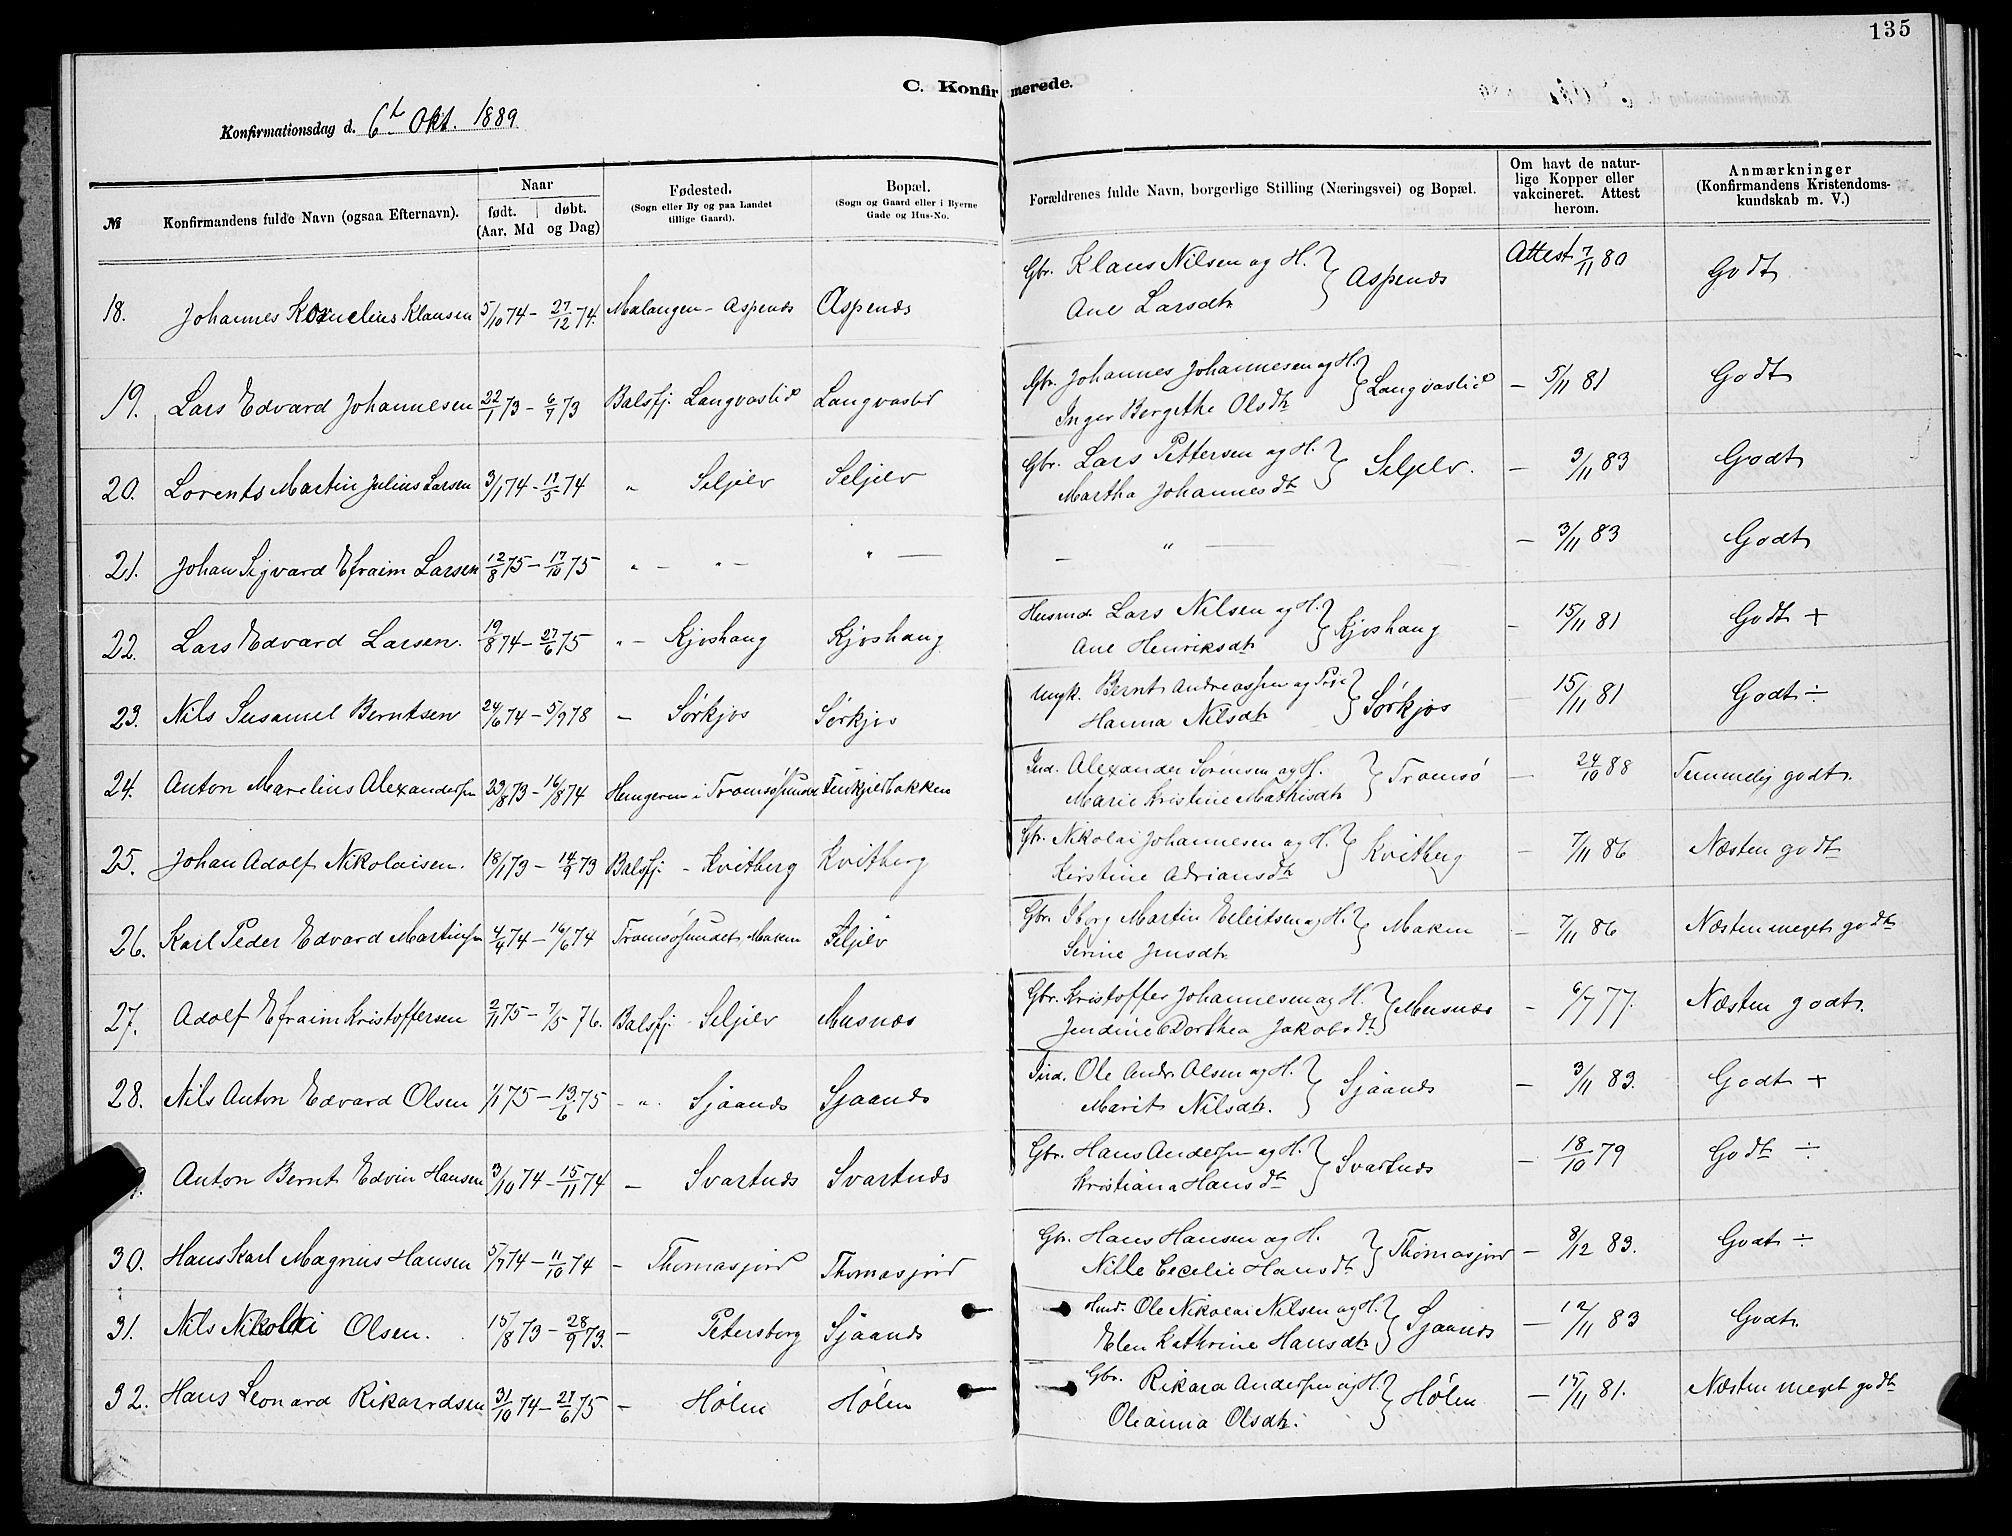 135
C. Konfirmerede.
Konfirmationsdag d. 6t Okt. 1889
№ | Konfirmandens fulde Navn (ogsaa Efternavn). | Naar født. (Aar, Md | døbt. og Dag) | Fødested. (Sogn eller By og paa Landet tillige Gaard). | Bopæl. (Sogn og Gaard eller i Byerne Gade og Hus-No. | Forældrenes fulde Navn, borgerlige Stilling (Næringsvei) og Bopæl. | Om havt de naturlige Kopper eller vakcineret. Attest herom. | Anmærkninger (Konfirmandens Kristendomskundskab m. V.)
18. Johannes Kornelius Klausen 5/10 74 - 27/12 74. Malangen - Aspenes Aspenes Gbr. Klaus Nilsen og H. Ane Larsdtr } Aspenes Attest 7/11 80 Godt
19. Lars Edvard Johannesen 22/1 73 - 6/7 73 Balsfj. Langvaslid Langvaslid Gbr. Johannes Johannesen og H. Inger Bergithe Olsdtr } Langvaslid - 5/11 81 Godt
20. Lorents Martin Julius Larsen 3/1 74 - 17/5 74 " Seljelv Seljelv Gbr. Lars Pettersen og H. Martha Johannesdtr } Seljelv. - 3/11 83 Godt
21. Johan Sigvard Efraim Larsen 12/8 75 - 17/10 75 " - " - " — - " — - 3/11 83 Godt
22. Lars Edvard Larsen. 19/8 74 - 27/6 75 " - Kjoshaug Kjoshaug Husmd. Lars Nilsen og H. Ane Henriksdtr } Kjoshaug - 15/11 81 Godt +
23. Nils Berntsen 24/6 74 - 5/9 78 - Sørkjos Sørkjos Ungk. Bernt Andreassen og Pige Hanna Nilsdtr } Sørkjos - 15/11 81 Godt ÷
24. Anton Marelius Alexandersen 23/8 73 - 16/8 74 i Tromsøsundet Ind. Alexander Sørensen og H. Marie Kristine Mathisdtr } Tromsø - 24/10 88 Temmelig godt.
25. Johan Adolf Nikolaisen. 18/1 73 - 14/9 73 Balsfj. - Kvitberg Kvitberg Gbr. Nikolai Johannesen og H. Kirstine Adriansdtr } Kvitberg - 7/11 86 Næsten godt
26. Karl Peder Edvard Martinsen 4/4 74 - 16/6 74 Tromsøsundet Maken Seljelv Gbr. Martin og H. Serine Jensdtr. } Maken - 7/11 86 Næsten meget godt
27. Adolf Efraim Kristoffersen 2/11 75 - 7/5 76. Balsfj. Seljelv Masnæs Gbr. Kristoffer Johannesen og H. Jendine Dorthea Jakobsdtr } Masnæs - 6/7 77. Næsten godt.
28. Nils Anton Edvard Olsen 1/1 75 - 13/6 75 - ". Sjaanes Sjaanes Ind. Ole Andr. Olsen og H. Marit Nilsdtr. } Sjaanes - 3/11 83. Godt +
Anton Bernt Edvin Hansen 3/10 74 - 15/11 74 - Svartnes Svartnes Gbr. Hans Andersen og H. Kristiana Hansdtr } Svartnes - 18/10 79 Godt ÷
30. Hans Karl Magnus Hansen 5/7 74 - 11/10 74 - Thomasjord Thomasjord Gbr. Hans Hansen og H. Nille Cecelie Hansdtr } Thomasjord - 8/12 83. Godt ÷
31. Nils Nikolai Olsen. 15/8 73 - 28/9 73. - Petersborg Sjaanes Husmd. Ole Nikolai Nilsen og H. Elen Kathrine Hansdtr } Sjaanes - 12/11 83 Godt.
32. Hans Leonard Rikardsen 31/10 74 - 27/6 75 - Hølen Hølen Gbr. Rikard Andersen og H. Oleanna Olsdtr. } Hølen - 15/11 81. Næsten meget godt